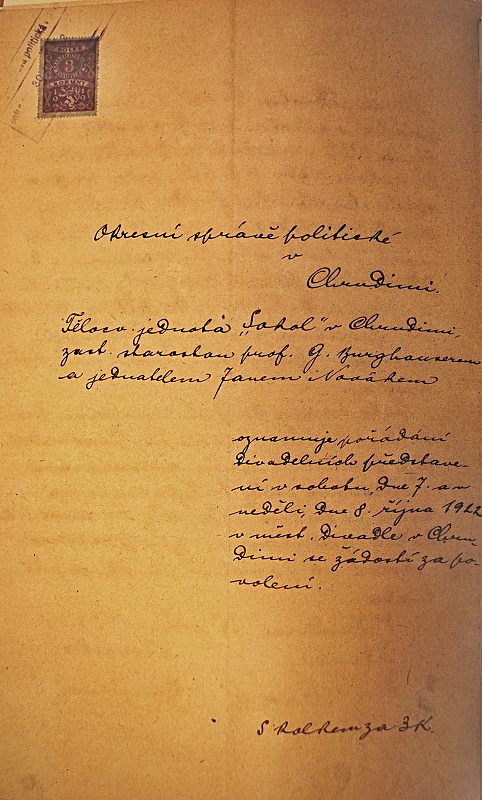 politická
KOLEK
3
KORUNY
Okresní správě politické
v
Chrudimi.
Tělocv. jednota „Sokol" v Chrudimi,
zast. starostou prof. G. Burghauserem
a jednatelem Janem Novákem
oznamuje pořádání
divadelních představe-
ní v sobotu, dne 7. a v
neděli, dne 8. října 1922
v měst. divadle v Chru-
dimi se žádostí za po-
volení.
S kolkem za 3 K.